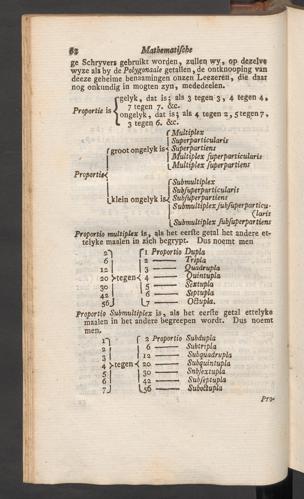 62 Mathematische
ge Schryvers gebruikt worden, zullen wy, op dezelve
wyze als by de Polygonaale getallen, de ontknooping van
deeze geheime benaamingen onzen Leezeren, die daar
nog onkundig in mogten zyn, mededeelen.
gelyk, dat is; als 3 tegen 3, 4 tegen 4,
7 tegen 7. &c.
Proportie is
ongelyk, dat is; als 4 tegen 2, 5 tegen 7,
3 tegen 6. &c.
Multiplex
Superparticularis
groot ongelyk is Superpartiens
Multiplex superparticularis
Multiplex superpartiens
Proportie
Submultiplex
Subsuperparticularis
klein ongelyk is Subsuperpartiens
Submultiplex subsuperparticu-
(laris
Submultiplex subsuperpartiens
Proportio multiplex is, als het eerste getal het andere et-
telyke maalen in zich begrypt. Dus noemt men
2 1 Proportio Dupla
6 2 —— Tripla
12 3 —— Quadrupla
20 tegen 4 —— Quintupla
30 5 —— Sextupla
42 6 —— Septupla
56 7 —— Octupla.
Proportio Submultiplex is, als het eerste getal ettelyke
maalen in het andere begreepen wordt. Dus noemt
men.
1 2 Proportio Subdupla
2 6 —— Subtripla
3 12 —— Subquadrupla
4 tegen 20 —— Subquintupla
5 30 —— Subsextupla
6 42 —— Subseptupla
7 56 —— Suboctupla
Pro-